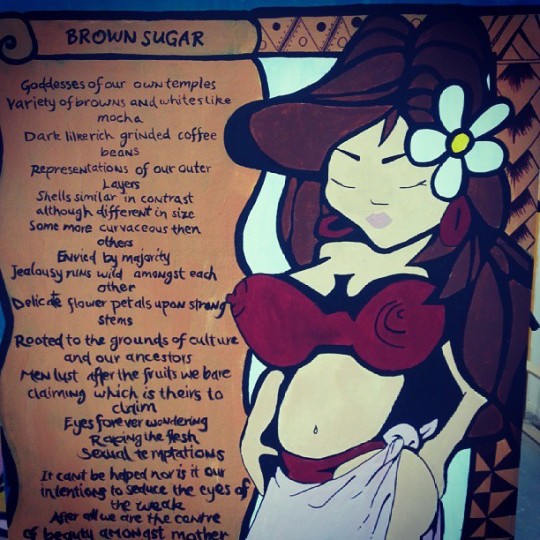 BROWN SUGAR
Goddesses of our own temples
Variety of browns and whites like
mocha
Dark like rich grinded coffee
beans
Representations of our outer
Layers
Shells similar in contrast
although different in size
Some more curvaceous then
others
Envied by majority
Jealousy runs wild amongst each
other
Delicate flower petals upon strong
stems
Rooted to the grounds of culture
and our ancestors
Men lust after the fruits we bare
claiming which is theirs to
claim
Eyes forever wondering
Raping the flesh
Sexual temptations
It cant be helped nor is it our
intentions to seduce the eyes of
the weak
After all we are the centre
of beauty amongst mother